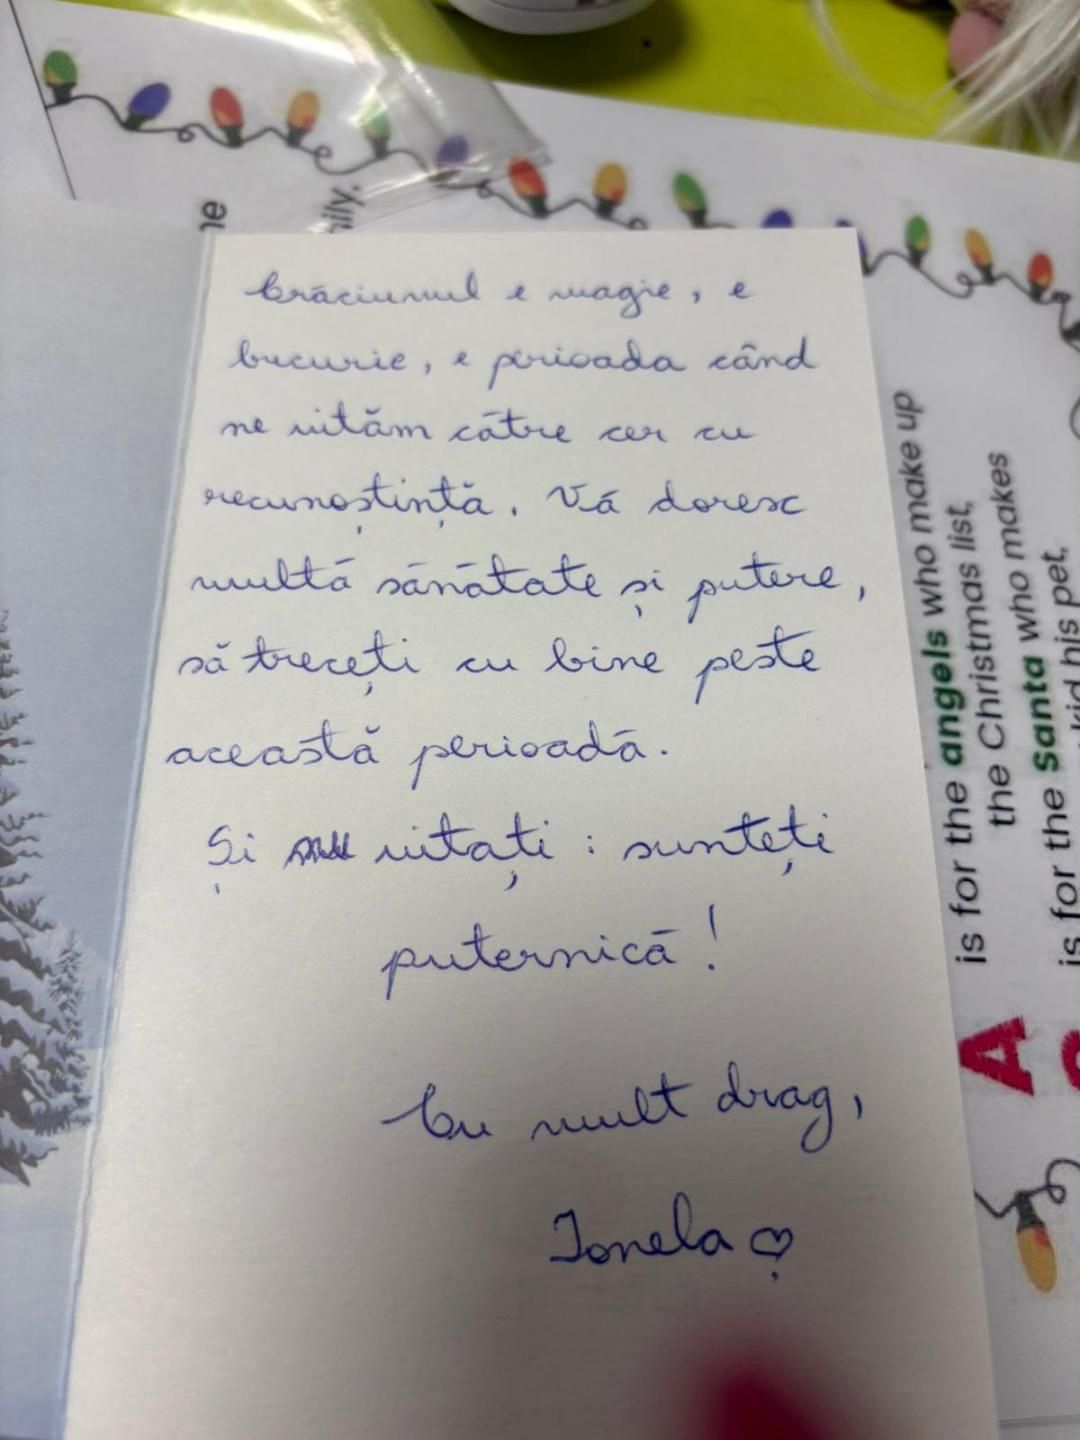 Crăciunul e magie, e
bucurie, e perioada când
ne uităm către cer cu
recunoștință. Vă doresc
multă sănătate și putere,
să treceți cu bine peste
această perioadă.
Și nu uitați: sunteți
puternică!
Cu mult drag,
Ionela
is for the angels who make up
the Christmas list,
the Santa who makes
is for the
kid his pet,
A